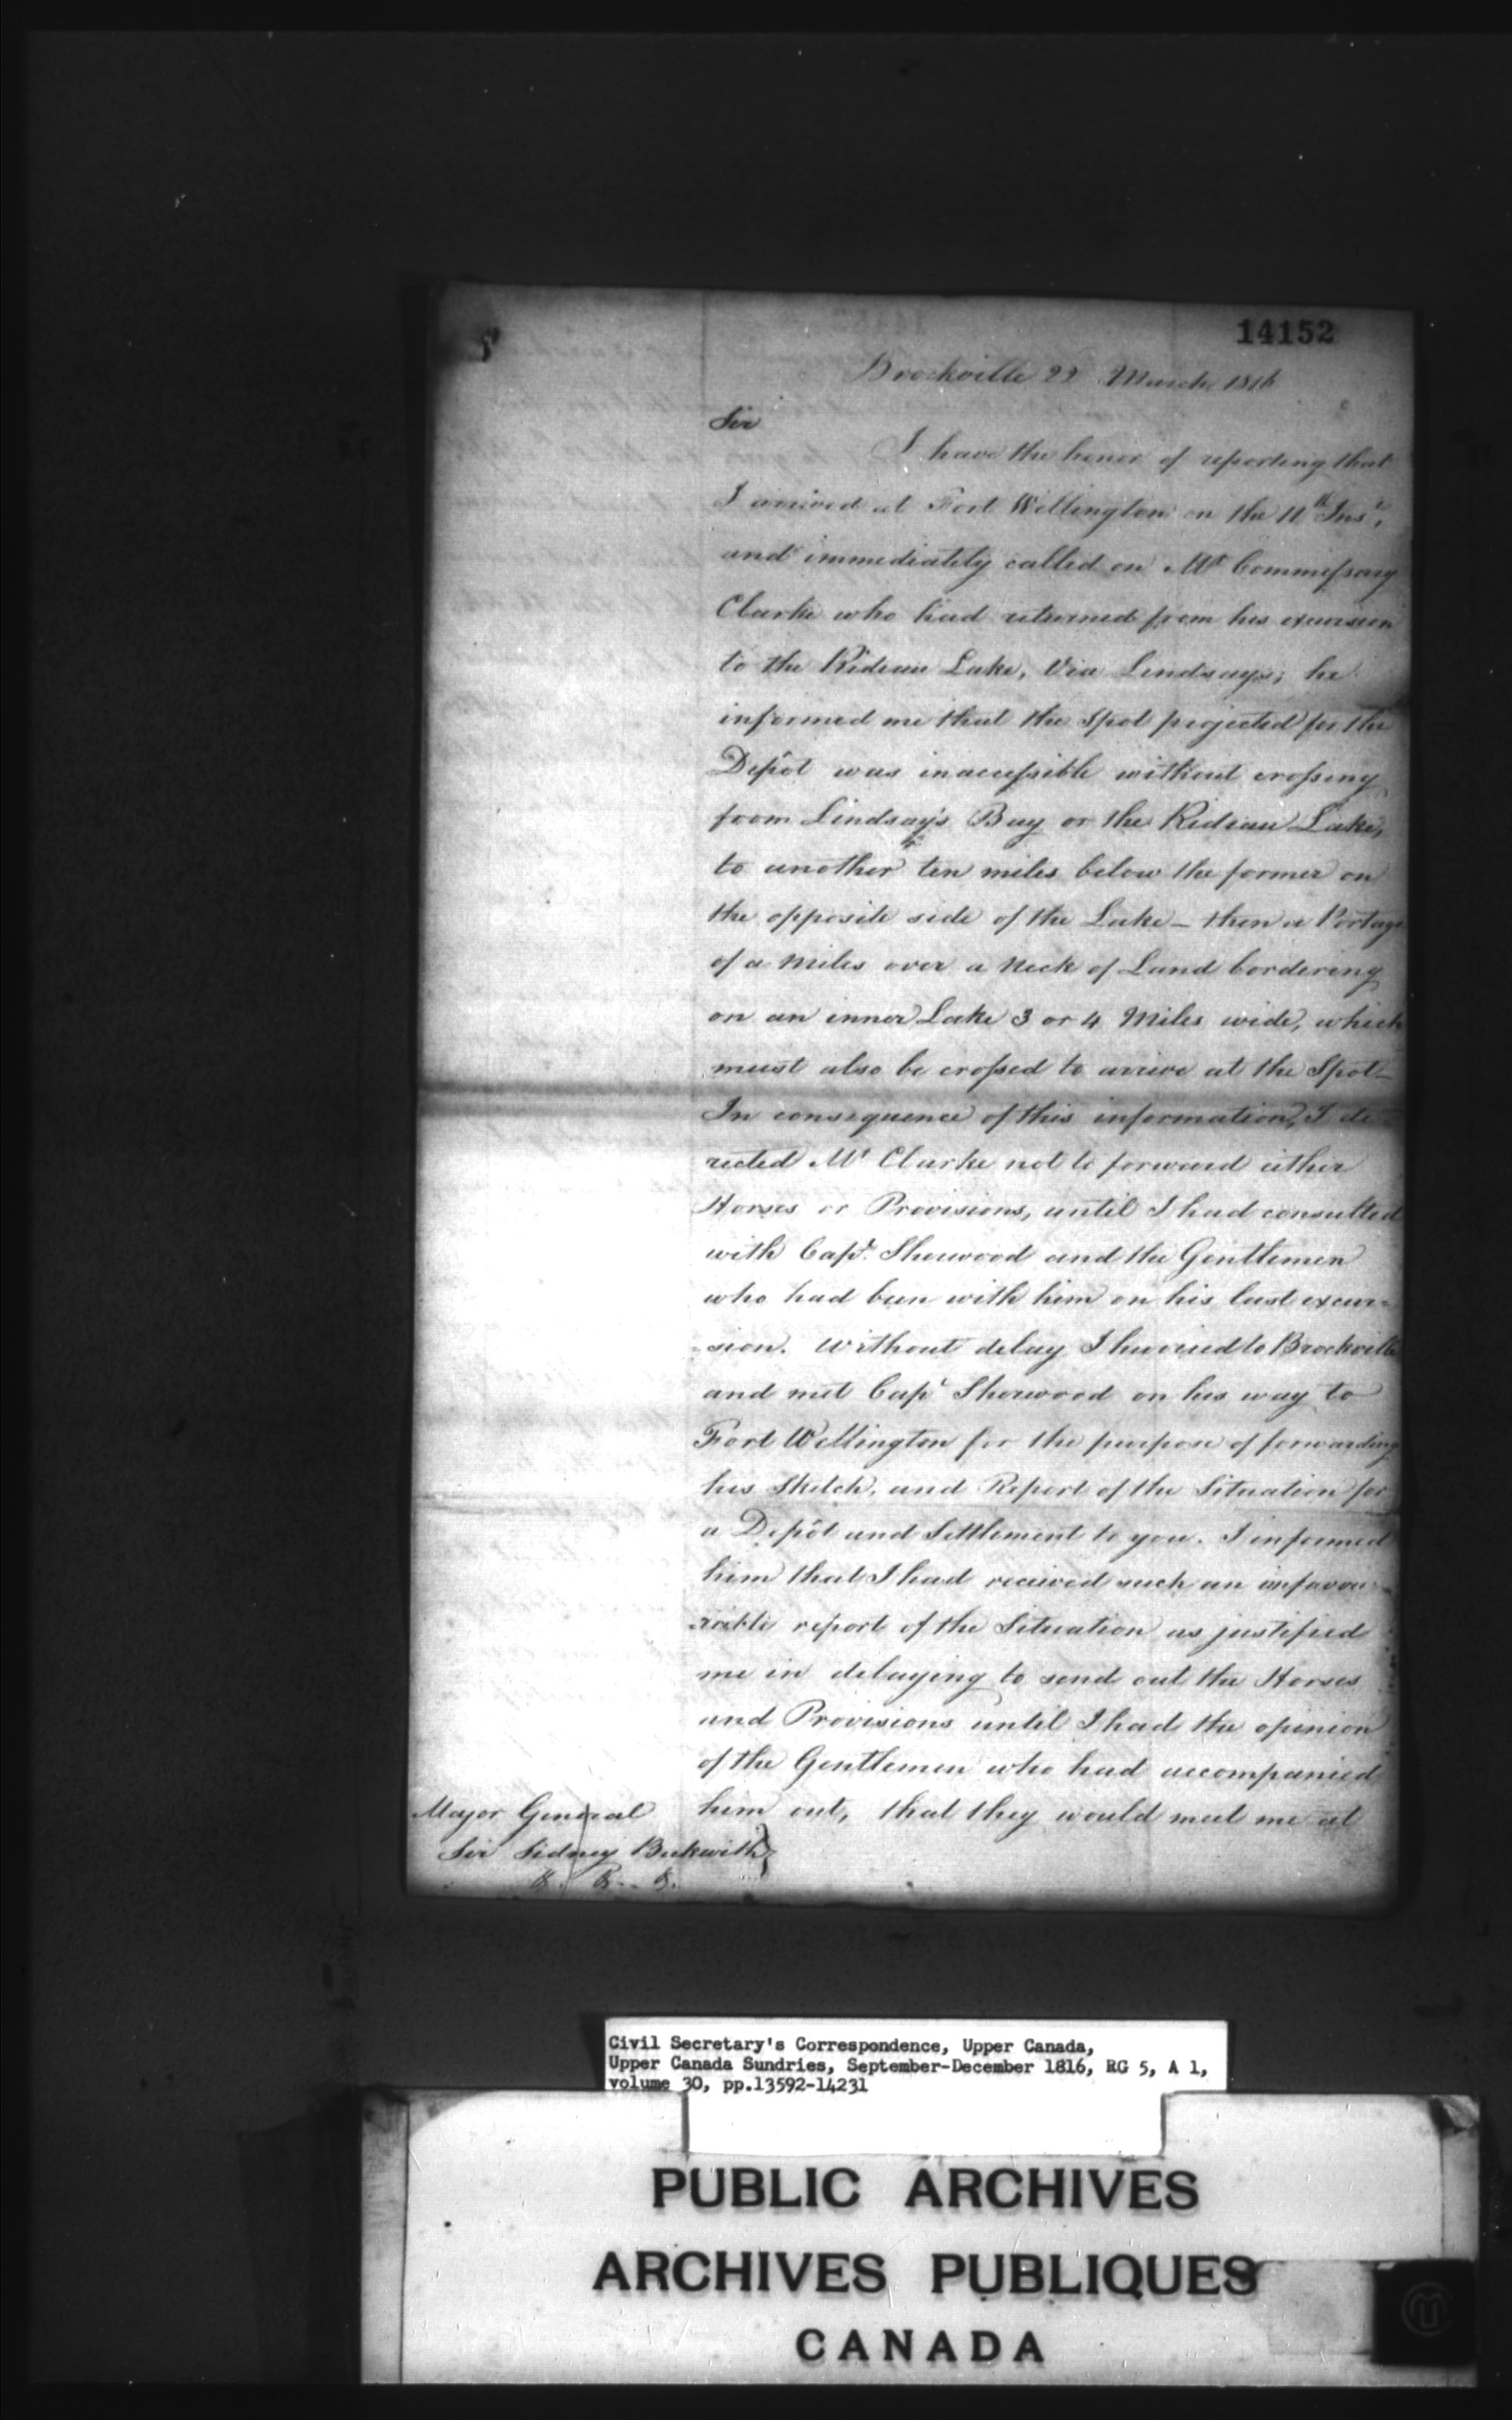 14152
Brockville 22 March 1816
Sir
I have the honor of reporting that
I arrived at Fort Wellington on the 11th Inst,
and immediately called on Mr Commissary
Clarke who had returned from his excursion
to the Rideau Lake, Via Lindsays; he
informed me that the Spot projected for the
Depôt was inaccessible without crossing
from Lindsay's Bay or the Rideau Lake,
to another ten miles below the former on
the opposite side of the Lake – then a Portage
of a Miles over a Neck of Land bordering
on an inner Lake 3 or 4 Miles wide, which
must also be crossed to arrive at the Spot –
In consequence of this information, I di-
rected Mr Clarke not to forward either
Horses or Provisions, until I had consulted
with Capt. Sherwood and the Gentlemen
who had been with him on his last excur-
-sion. Without delay I hurried to Brockville
and met Capt Sherwood on his way to
Fort Wellington for the purpose of forwarding
his Sketch, and Report of the Situation for
a Depôt and Settlement to you. I informed
him that I had received such an unfavou-
-rable report of the Situation as justified
me in delaying to send out the Horses
and Provisions until I had the opinion
of the Gentlemen who had accompanied
him out, that they would meet me at
Major General
Sir Sidney Beckwith
&. &. &.
Civil Secretary's Correspondence, Upper Canada,
Upper Canada Sundries, September-December 1816, RG 5, A 1,
volume 30, pp.13592-14231
PUBLIC ARCHIVES
ARCHIVES PUBLIQUES
CANADA